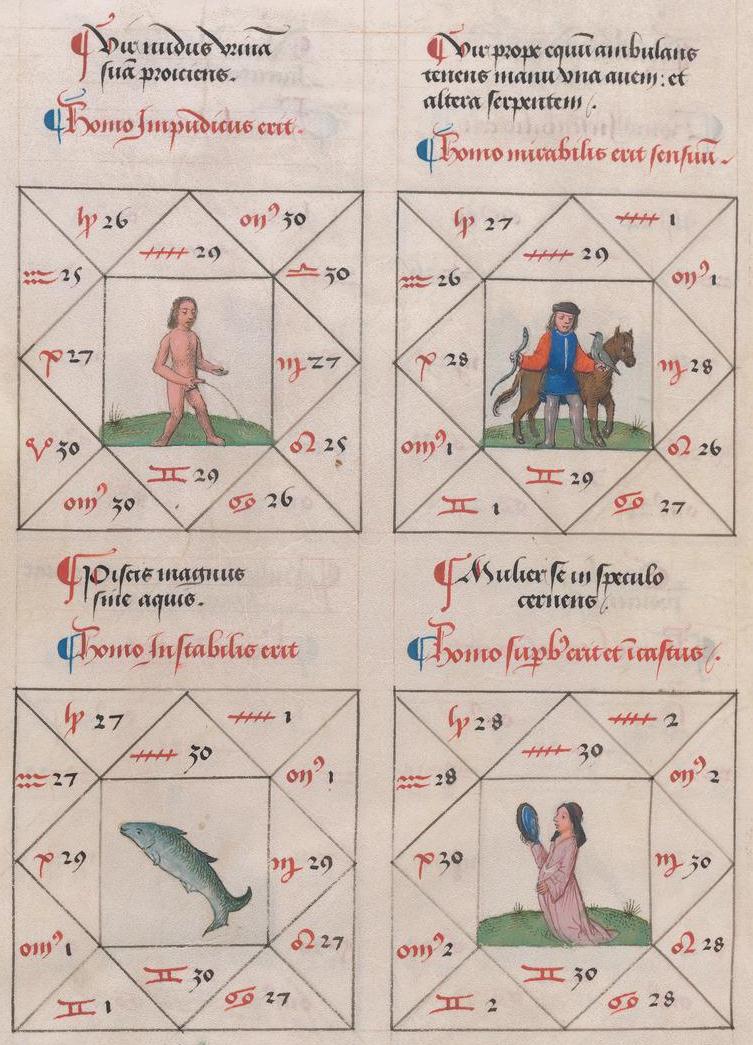 Vir nudus vrinā
suā proiciens.
Homo Impudicus erit.
26
30
29
25
30
27
27
30
25
29
30
26
Vir prope equū ambulans
tenens manu vna auem: et
altera serpentem.
Homo mirabilis erit sensuū.
27
1
29
26
1
28
28
1
26
29
1
27
Piscis magnus
sine aquis.
Homo Instabilis erit
27
1
30
27
1
29
29
1
27
30
1
27
Mulier se in speculo
cernens
Homo supb' erit et īcastus.
28
2
30
28
2
30
30
2
28
30
2
28